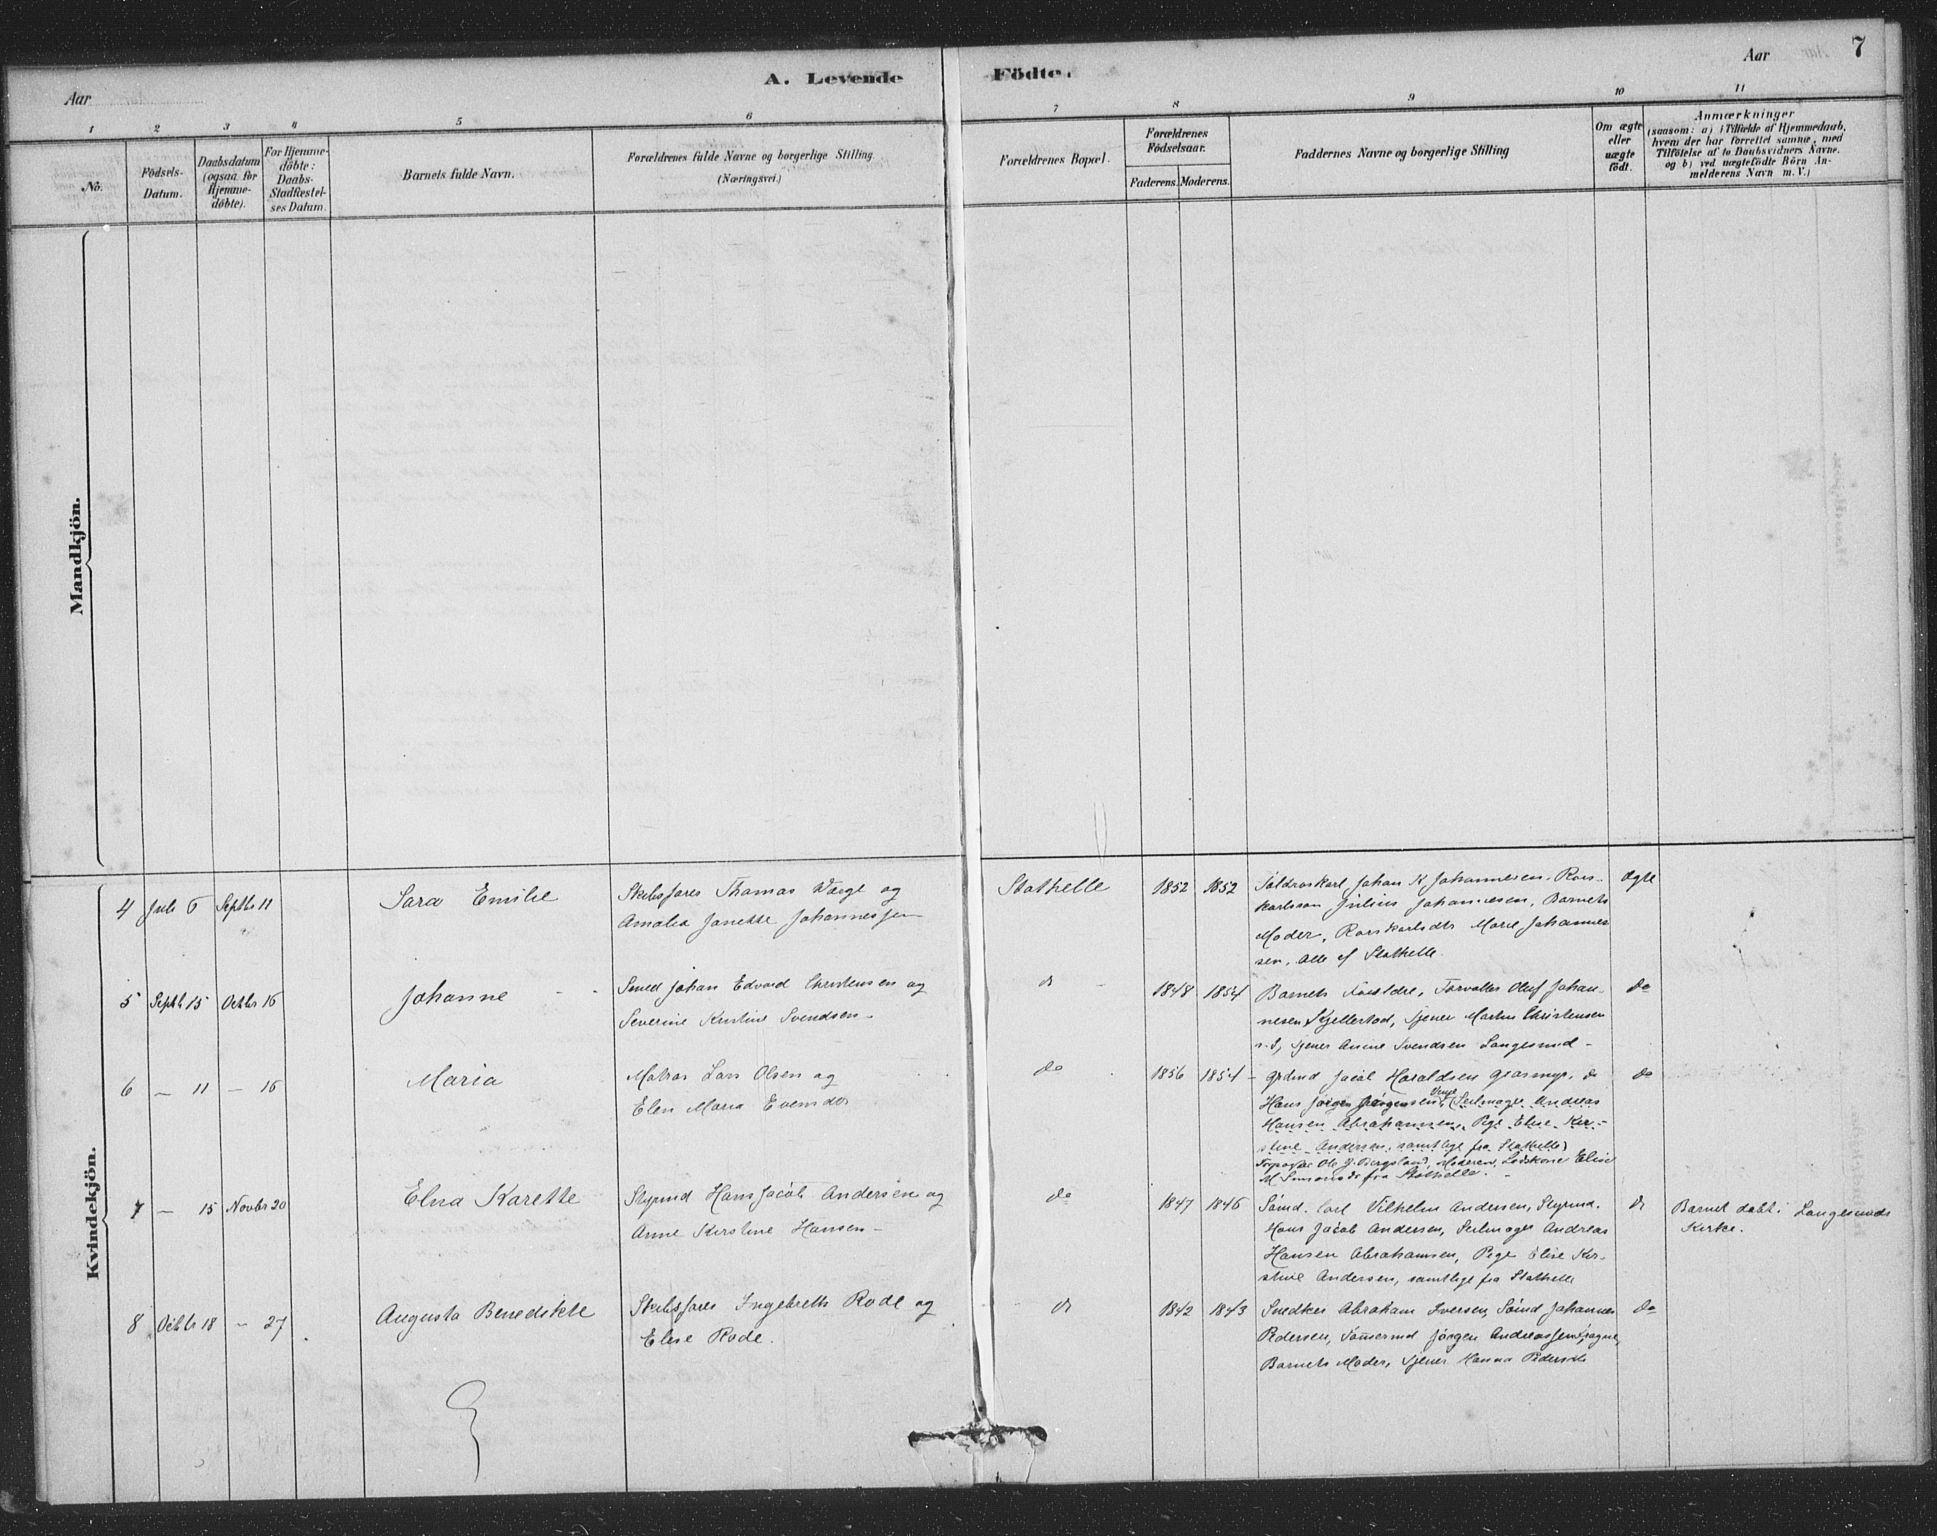 7
A. Levende Födte.
Aar
Aar
1 2 3 4 5 6 7 8 9 10 11
No.
Födsels-Datum.
Daabsdatum (ogsaa for Hjemme-døbte).
For Hjemme-døbte: Daabs-Stadfæstel-ses Datum.
Barnets fulde Navn.
Forældrenes fulde Navne og borgerlige Stilling (Næringsvei.)
Forældrenes Bopæl.
Forældrenes Fødselsaar.
Faderens. Moderens.
Faddernes Navne og borgerlige Stilling
Om ægte eller uægte født.
Anmærkninger
(saasom: a) i Tilfælde af Hjemmedaab,
hvem der har forrettet samme, med
Tilføielse af to Daabsvidners Navne.
og b) ved uægtefødte Børn An-
melderens Navn m. V.)
Mandkjön.
Kvindekjön.
4 Juli 6 Septbr 11 Sara Emilie
Skibsfører Thomas og
Amalia Janette Johannessen
Stathelle 1852 1852
Johan K Johannesen,
Julius Johannesen, Barnets
Moder, Marie Johannes
sen, Alle af Stathelle.
ægte
5 Septbr 15 Octbr 16 Johanne
Smed Johan Edvard Christensen og
Severine Kristine Svendsen
do 1848 1854
Barnets Forældre, Forvalter Oluf Johan-
nesen, Martin Christensen
Anine Svendsen Langesund
do
6 — 11 — 16 Maria
Matros Lars Olsen og
Elen Maria
do 1856 1854
Jacob Haraldsen do
Hans Jørgen Jørgensen, (Seilmager Andreas
Hansen Abrahamsen, Pige Elise Ker-
stine Andersen, samtlige fra Stathelle)
Ole Bergsland, Moderen, Elise
M fra Stathelle.
do
7 — 15 Novbr 20 Elna Karette
Styrmd Hans Jacob Andersen og
Anne Kirstine Hansen
do 1847 1846
Sømd. Carl Vilhelm Andersen, Styrmd.
Hans Jacob Andersen, Seilmager Andreas
Hansen Abrahamsen, Pige Elise Ker-
stine Andersen, samtlige fra Stathelle
do
Barnet døbt i Langesunds
Kirke.
8 Octbr 18 — 27 Augusta Benedikte
Skibsfører Ingebreth Rode og
Elise Rode.
do 1842 1843
Snedker Abraham Iversen, Sømd Johannes
Pedersen, Tømmermd Jørgen Andreassen,
Barnets Moder, Hanna
do